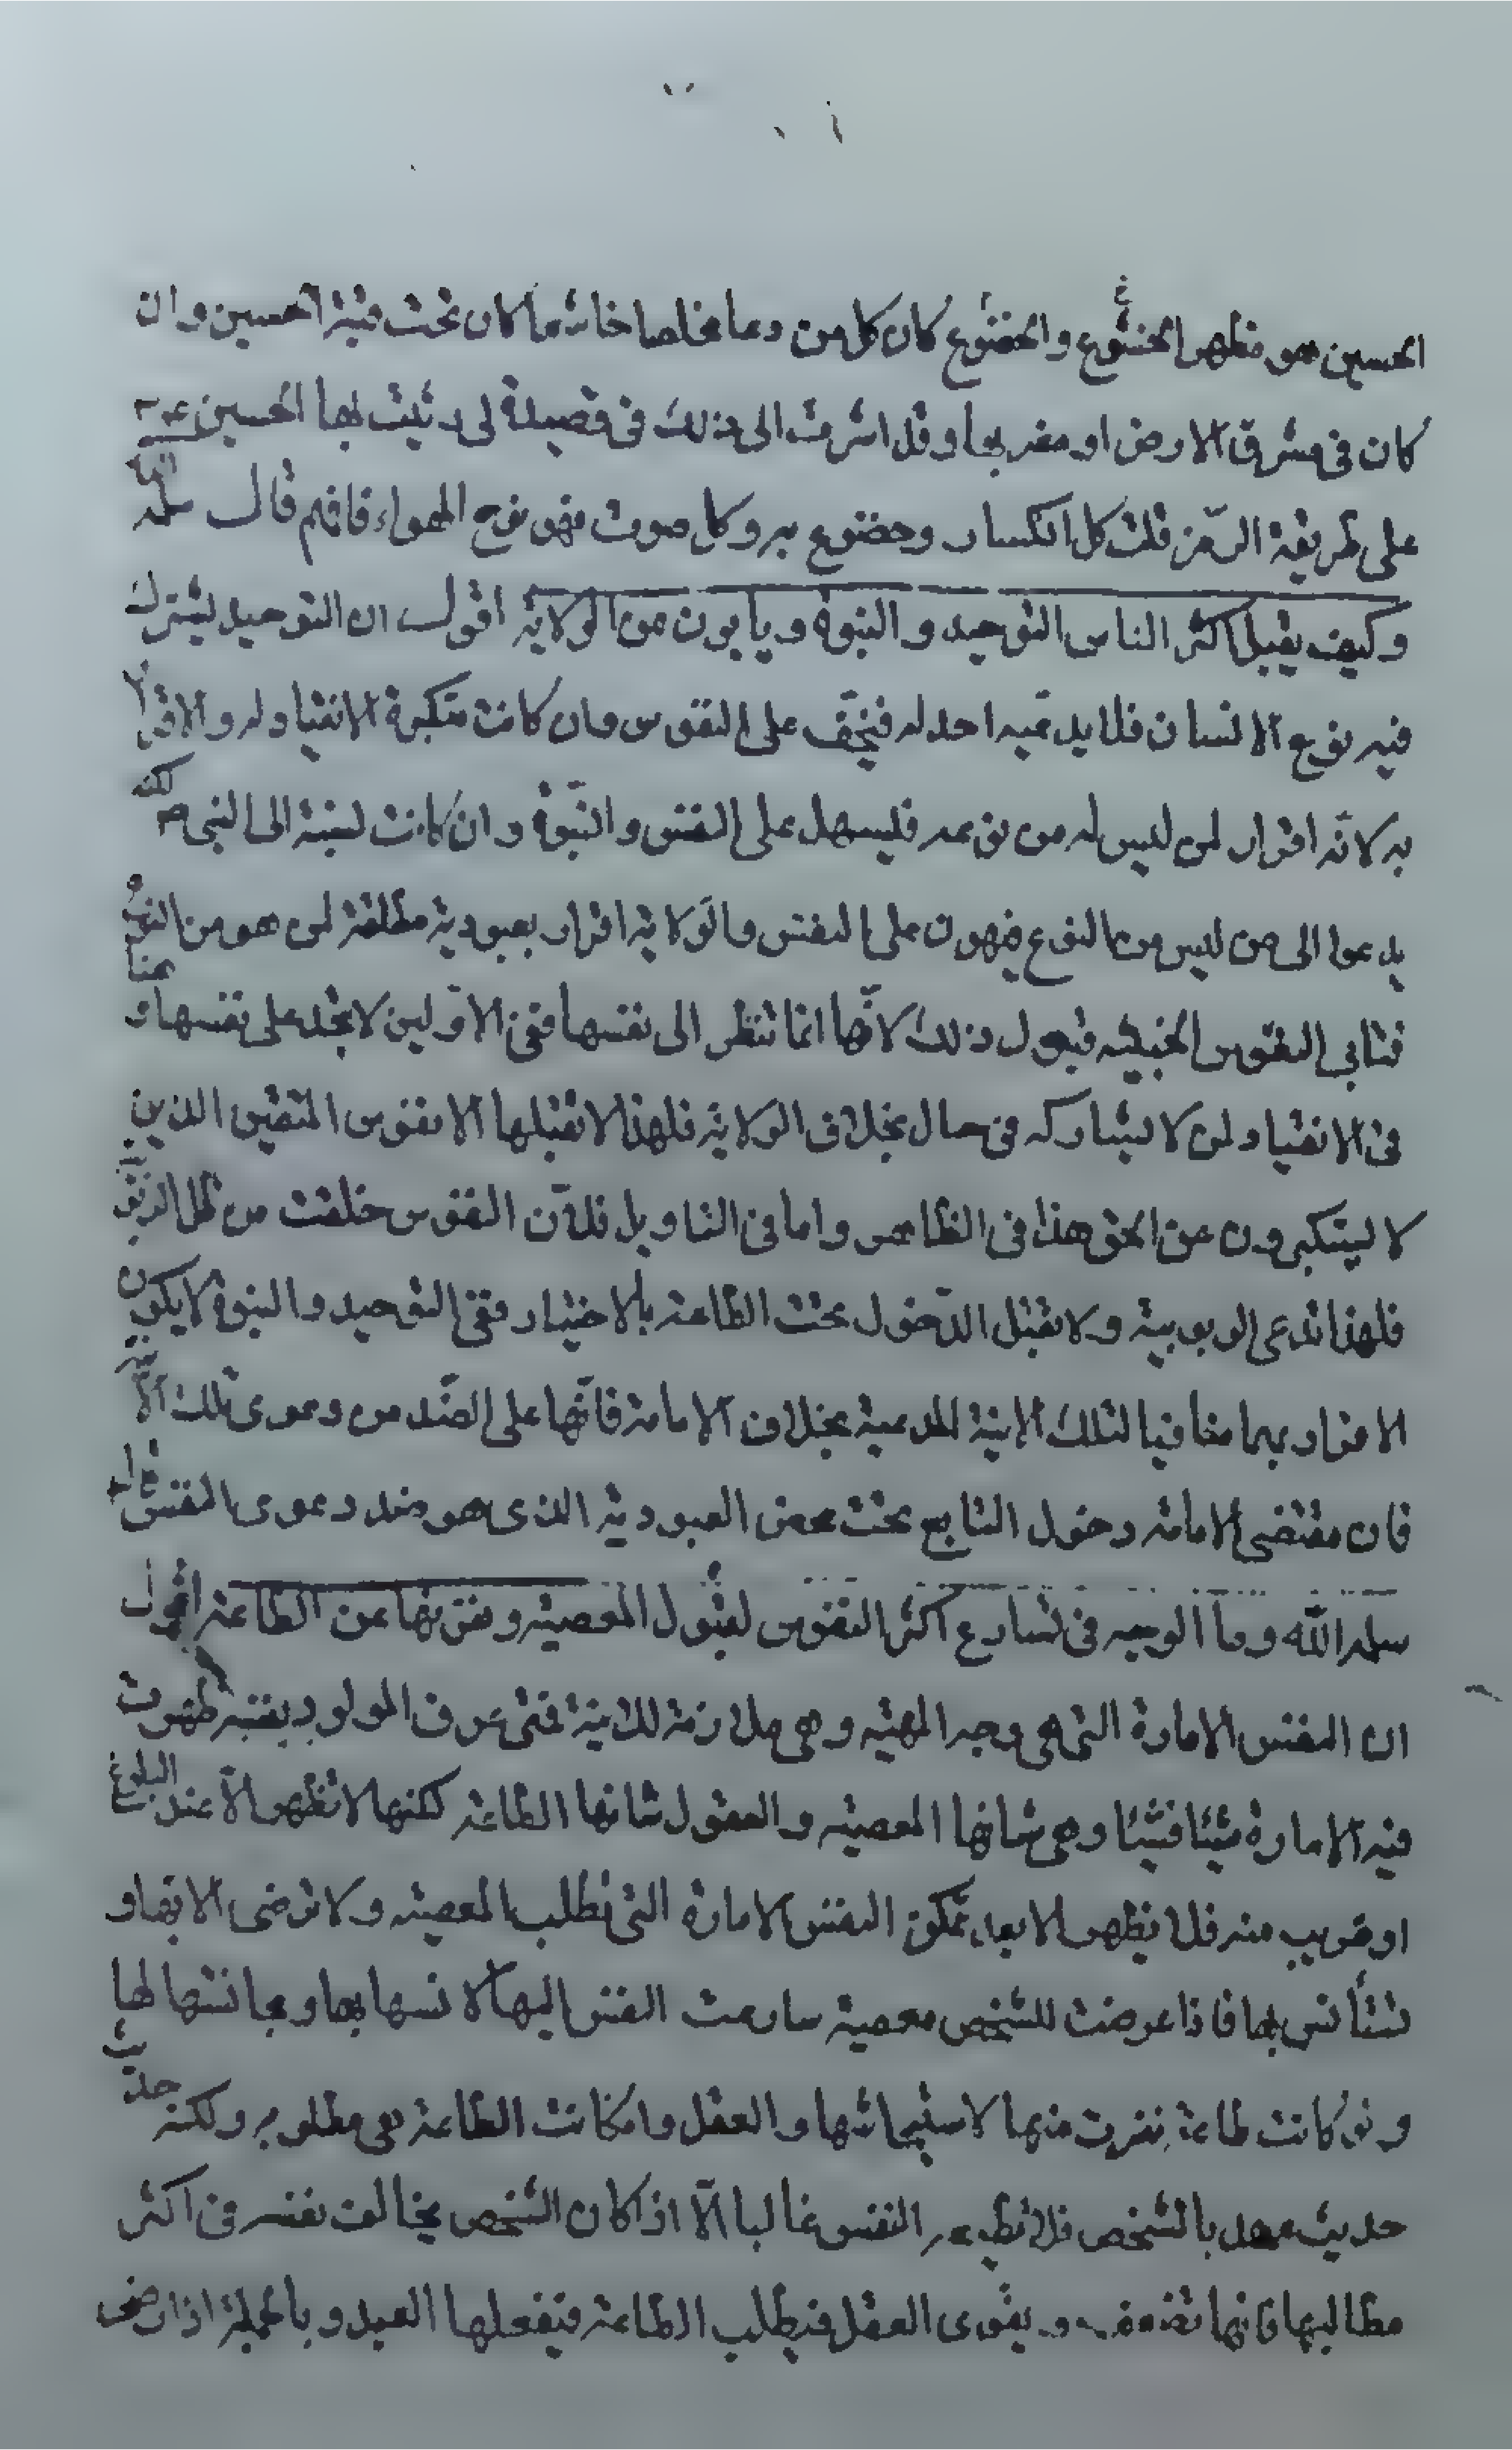 الحسين هو مظهر الخشوع والخضوع كان كل من دعا مخلصا خاشعا كان تحت قبة الحسين وان
كان فى مشرق الارض او مغربها وقد اشرت الى ذلك فى قصيدة لى رثيت بها الحسين ع
على طريقة الرّمز قلت كل انكسار وخضوع به وكل صوت فهو نوح الهواء فافهم قال سلمه الله
وكيف يقبل اكثر الناس التوحيد والنبوة ويابون من الولاية اقول ان التوحيد ليشترك
فيه نوع الانسان فلا يدعيه احد له فيخف على النفوس وان كانت متكبرة الانقياد له والاقرار
به لانّه اقرار لمن ليس له من نوعه فليسهل على النفس والنبّوة وان كانت لسبة الى النبى ص لكنه
يدعوا الى من ليس من النوع فيهون على النفس والولاية اقرار بعبودية مطلقة لمن هو من النوع
فتابى النفوس الخبيثه قبول ذلك لانّها انما تنظر الى نفسها ففى الاوّلين لا تجد على نفسها
فى الانقياد لمن لا يشاركه فى حال بخلاف الولاية فلهذا لا تقبلها الا نفوس المتقين الذين
لا يستكبرون عن الحق هذا فى الظاهر واما فى التاويل فلانّ النفوس خلقت من ظل الربوبية
فلهذا تدعى الربوبية ولا تقبل الدّخول تحت الطاعة بالاختيار ففى التوحيد والنبوة لا يكون
الاقرار بهما منافيا لتلك الانية المدعية بخلاف الامامة فانّها على الضّد من دعوى تلك الانّية
فان مقتضى الامامة دخول التابع تحت محض العبودية الذى هو ضد دعوى النفس قال
سلمه الله وما الوجه فى تسارع اكثر النفوس لقبول المعصية ونفرتها عن الطاعة اقول
ان النفس الامارة التى هى وجه المهية وهى ملازمة للانية فمتى عرف المولود بنفسه ظهرت
فيه الامارة شيئا فشيئا وهى شانها المعصية والعقول شانها الطاعة لكنها لا تظهر الّا عند البلوغ
او قريب منه فلا يظهر الا بعد تمكّن النفس الامارة التى تطلب المعصية ولا ترضى الا بها و
تستأنس بها فاذا عرضت للشخص معصية سارعت النفس اليها لانسها بها ومجانستها لها
ولو كانت طاعة نفرت منها لاستيحاشها والعقل وان كانت الطاعة هى مطلوبه ولكنه
حديث عهد بالشخص فلا تطيعه النفس غالبا الّا اذا كان الشخص يخالف نفسه فى اكثر
مطالبها فانها تضعف ويقوى العقل فيطلب الطاعة فيفعلها العبد وبالجملة اذا رضى